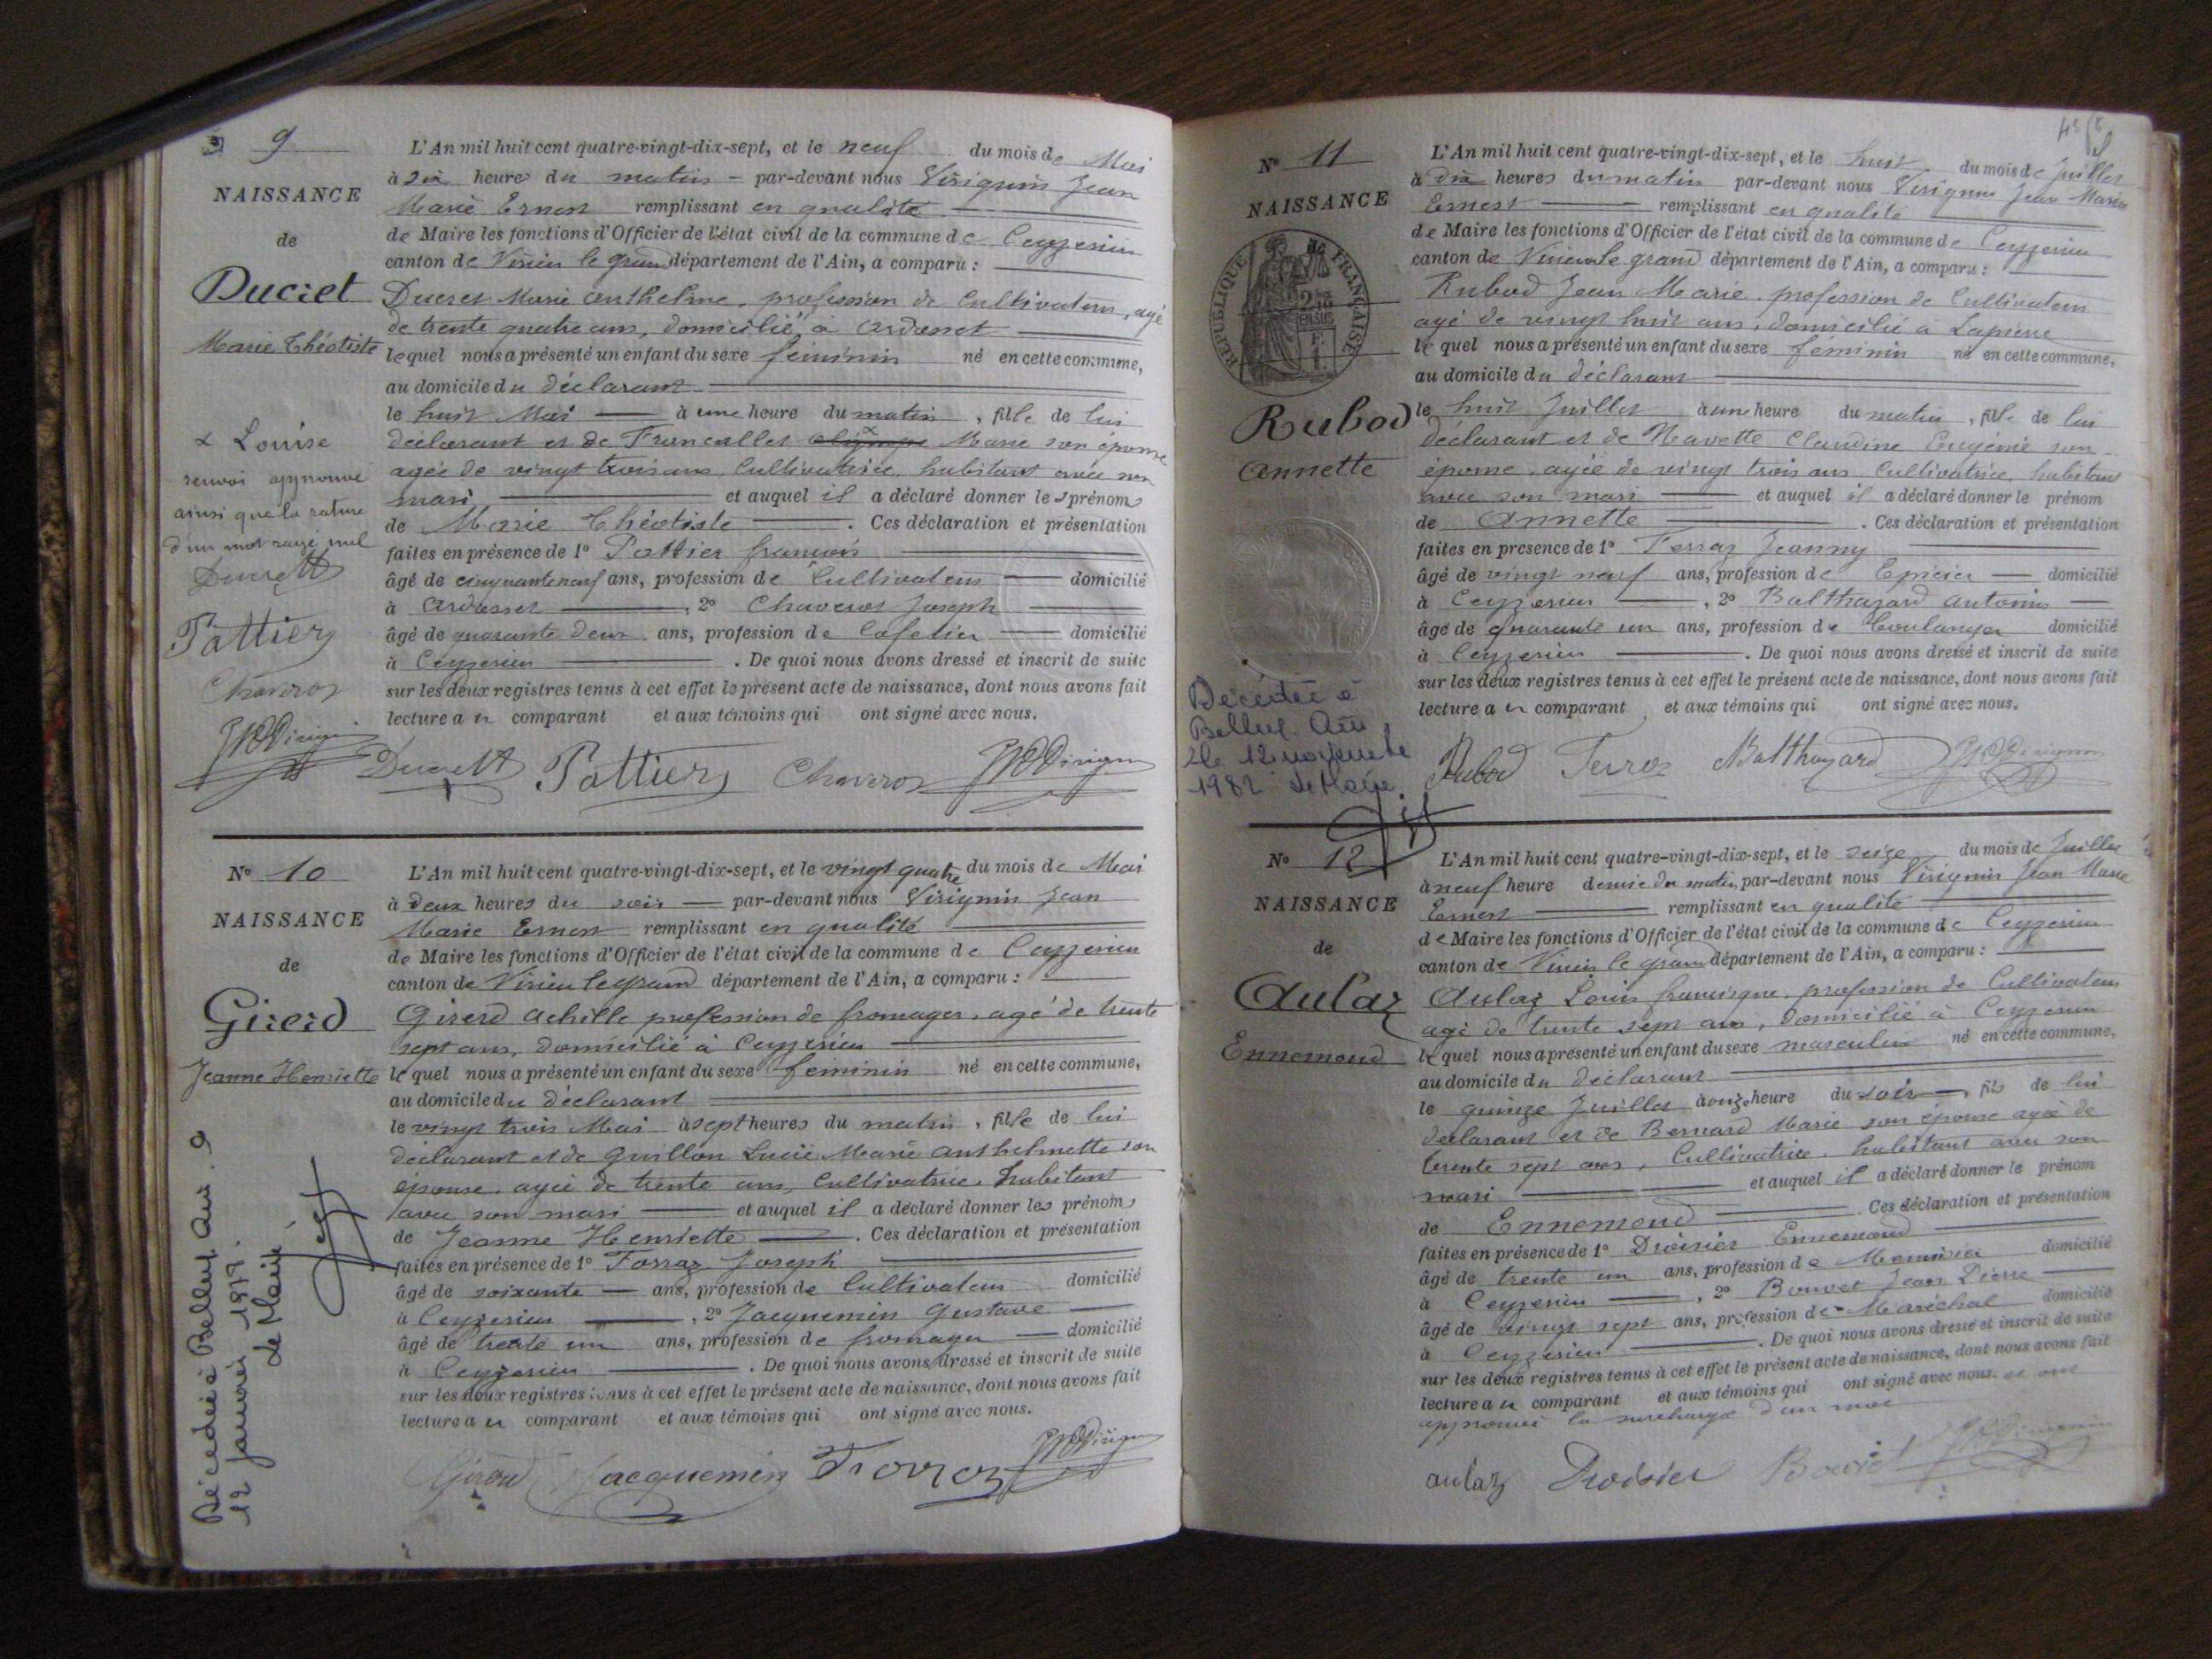 9
NAISSANCE
de
Ducret
Marie Théotiste
x Louise
renvoi approuvé
ainsi que la rature
d'un mot rayé nul
Ducrett
Pattier
Chaveroz
L'An mil huit cent quatre-vingt-dix-sept, et le neuf du mois de Mai
à six heure du matin par-devant nous Virignin Jean
Marie Ernest remplissant en qualité
de Maire les fonctions d'Officier de l'état civil de la commune de Ceyzerieu
canton de Virieu le grand département de l'Ain, a comparu :
Ducret Marie Anthelme, profession de Cultivateur, agé
de trente quatre ans, domicilié, à Ardosset
lequel nous a présenté un enfant du sexe féminin né en cette commune,
au domicile du déclarant
le huit Mai à une heure du matin, fille de lui
déclarant et de Francallet Marie son épouse
agée de vingt trois ans Cultivatrice, habitant avec son
mari et auquel il a déclaré donner les prénoms
de Marie Théotiste. Ces déclaration et présentation
faites en présence de 1° Pattier françois
âgé de cinquante neuf ans, profession de Cultivateur domicilié
à Ardosset, 2° Chaveroz Joseph
âgé de quarante deux ans, profession de Cafetier domicilié
à Ceyzerieu. De quoi nous avons dressé et inscrit de suite
sur les deux registres tenus à cet effet le présent acte de naissance, dont nous avons fait
lecture au comparant et aux témoins qui ont signé avec nous.
Ducrett Pattier Chaveroz
N° 10
NAISSANCE
de
Girerd
Jeanne Henriette
Décédée à Belley Ain. 9
12 janvier 1979.
L'An mil huit cent quatre-vingt-dix-sept, et le vingt quatre du mois de Mai
à deux heures du soir par-devant nous Virignin Jean
Marie Ernest remplissant en qualité
de Maire les fonctions d'Officier de l'état civil de la commune de Ceyzerieu
canton de Virieu le grand département de l'Ain, a comparu :
Girerd Achille profession de fromager, agé de trente
sept ans, domicilié à Ceyzerieu
lequel nous a présenté un enfant du sexe féminin né en cette commune,
au domicile du déclarant
le vingt trois Mai à sept heures du matin, fille de lui
déclarant et de Guillon Lucie Marie Anthelmette son
épouse, agée de trente ans, Cultivatrice, habitant
avec son mari et auquel il a déclaré donner les prénoms
de Jeanne Henriette. Ces déclaration et présentation
faites en présence de 1° Forraz Joseph
âgé de soixante ans, profession de Cultivateur domicilié
à Ceyzerieu, 2° Jacquemin Gustave
âgé de trente un ans, profession de fromager domicilié
à Ceyzerieu. De quoi nous avons dressé et inscrit de suite
sur les deux registres tenus à cet effet le présent acte de naissance, dont nous avons fait
lecture au comparant et aux témoins qui ont signé avec nous.
Girerd Jacquemin
N° 11
NAISSANCE
RÉPUBLIQUE FRANÇAISE
Rubod
Annette
Décédée à
Belley Ain
le 12 novembre
1982
L'An mil huit cent quatre-vingt-dix-sept, et le huit du mois de Juillet
à dix heures du matin par-devant nous Virignin Jean Marie
Ernest remplissant en qualité
de Maire les fonctions d'Officier de l'état civil de la commune de Ceyzerieu
canton de Virieu le grand département de l'Ain, a comparu :
Rubod Jean Marie, profession de Cultivateur
agé de vingt huit ans, domicilié à Lapierre
lequel nous a présenté un enfant du sexe féminin né en cette commune,
au domicile du déclarant
le huit Juillet à une heure du matin, fille de lui
déclarant et de Navette Claudine Eugénie son
épouse, agée de vingt trois ans, Cultivatrice, habitant
avec son mari et auquel il a déclaré donner le prénom
de Annette. Ces déclaration et présentation
faites en présence de 1° Ferraz Jeanny
âgé de vingt neuf ans, profession de Epicier domicilié
à Ceyzerieu, 2° Balthazard Antonin
âgé de quarante un ans, profession de boulanger domicilié
à Ceyzerieu. De quoi nous avons dressé et inscrit de suite
sur les deux registres tenus à cet effet le présent acte de naissance, dont nous avons fait
lecture au comparant et aux témoins qui ont signé avec nous.
Rubod Balthazard
N° 12
NAISSANCE
de
Aulaz
Ennemond
L'An mil huit cent quatre-vingt-dix-sept, et le seize du mois de Juillet
à neuf heure demie du matin, par-devant nous Virignin Jean Marie
Ernest remplissant en qualité
de Maire les fonctions d'Officier de l'état civil de la commune de Ceyzerieu
canton de Virieu le grand département de l'Ain, a comparu :
Aulaz Louis francisque, profession de Cultivateur
agé de trente sept ans, domicilié à Ceyzerieu
lequel nous a présenté un enfant du sexe masculin né en cette commune,
au domicile du déclarant
le quinze Juillet à onze heure du soir, fils de lui
déclarant et de Bernard Marie son épouse agée de
trente sept ans, Cultivatrice, habitant avec son
mari et auquel il a déclaré donner le prénom
de Ennemond. Ces déclaration et présentation
faites en présence de 1° Droisier Ennemond
âgé de trente un ans, profession de Menuisier domicilié
à Ceyzerieu, 2° Bouvet Jean Pierre
âgé de vingt sept ans, profession de Maréchal domicilié
à Ceyzerieu. De quoi nous avons dressé et inscrit de suite
sur les deux registres tenus à cet effet le présent acte de naissance, dont nous avons fait
lecture au comparant et aux témoins qui ont signé avec nous. et ont
approuvé la surcharge d'un mot
aulaz Droisier Bouvet